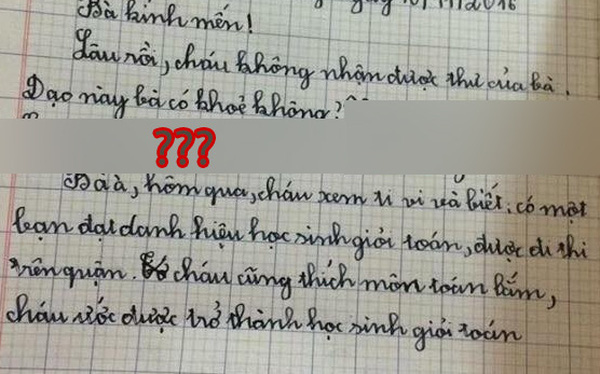 ngày 10/11/2016
Bà kính mến!
Lâu rồi, cháu không nhận được thư của bà.
Dạo này bà có khoẻ không?
???
Bà à, hôm qua, cháu xem ti vi và biết, có một
bạn đạt danh hiệu học sinh giỏi toán, được đi thi
trên quận. cháu cũng thích môn toán lắm,
cháu ước được trở thành học sinh giỏi toán